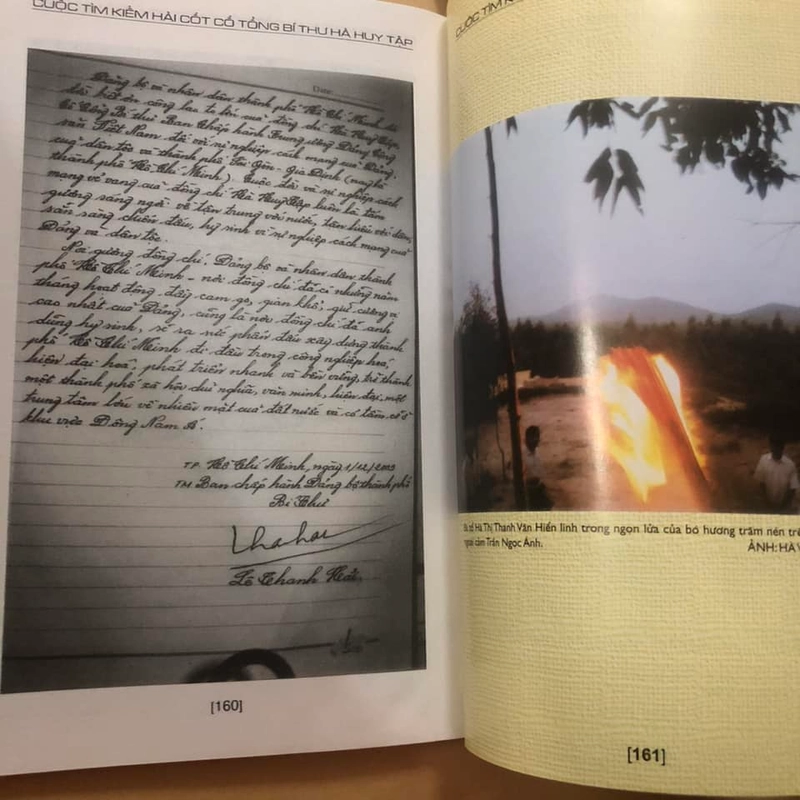 CUỘC TÌM KIẾM HÀI CỐT CỐ TỔNG BÍ THƯ HÀ HUY TẬP
Date:
Đảng bộ và nhân dân thành phố Hồ Chí Minh
biết ơn công lao to lớn của đồng chí Hà Huy Tập,
cố Tổng Bí thư Ban Chấp hành Trung ương Đảng Cộng
sản Việt Nam đối với sự nghiệp cách mạng của Đảng,
của dân tộc và thành phố Sài Gòn - Gia Định (nay là
thành phố Hồ Chí Minh). Cuộc đời và sự nghiệp cách
mạng vẻ vang của đồng chí Hà Huy Tập luôn là tấm
gương sáng ngời về tận trung với nước, tận hiếu với dân,
sẵn sàng chiến đấu, hy sinh vì sự nghiệp cách mạng của
Đảng và dân tộc.
Noi gương đồng chí, Đảng bộ và nhân dân thành
phố Hồ Chí Minh - nơi đồng chí đã có những năm
tháng hoạt động đầy cam go, gian khổ, giữ cương vị
cao nhất của Đảng, cũng là nơi đồng chí đã anh
dũng hy sinh, sẽ ra sức phấn đấu xây dựng thành
phố Hồ Chí Minh đi đầu trong công nghiệp hoá,
hiện đại hoá, phát triển nhanh và bền vững, trở thành
một thành phố xã hội chủ nghĩa, văn minh, hiện đại, một
trung tâm lớn về nhiều mặt của đất nước và có tầm cỡ ở
khu vực Đông Nam Á.
T.P. Hồ Chí Minh, ngày 1/12/2009
TM Ban chấp hành Đảng bộ thành phố
Bí Thư
Lê Thanh Hải
[160]
CUỘC TÌM
Hà Thị Thanh Vân Hiển linh trong ngọn lửa của bó hương trăm nén
ngoại cảm Trần Ngọc Ánh.
ẢNH: HÀ
[161]